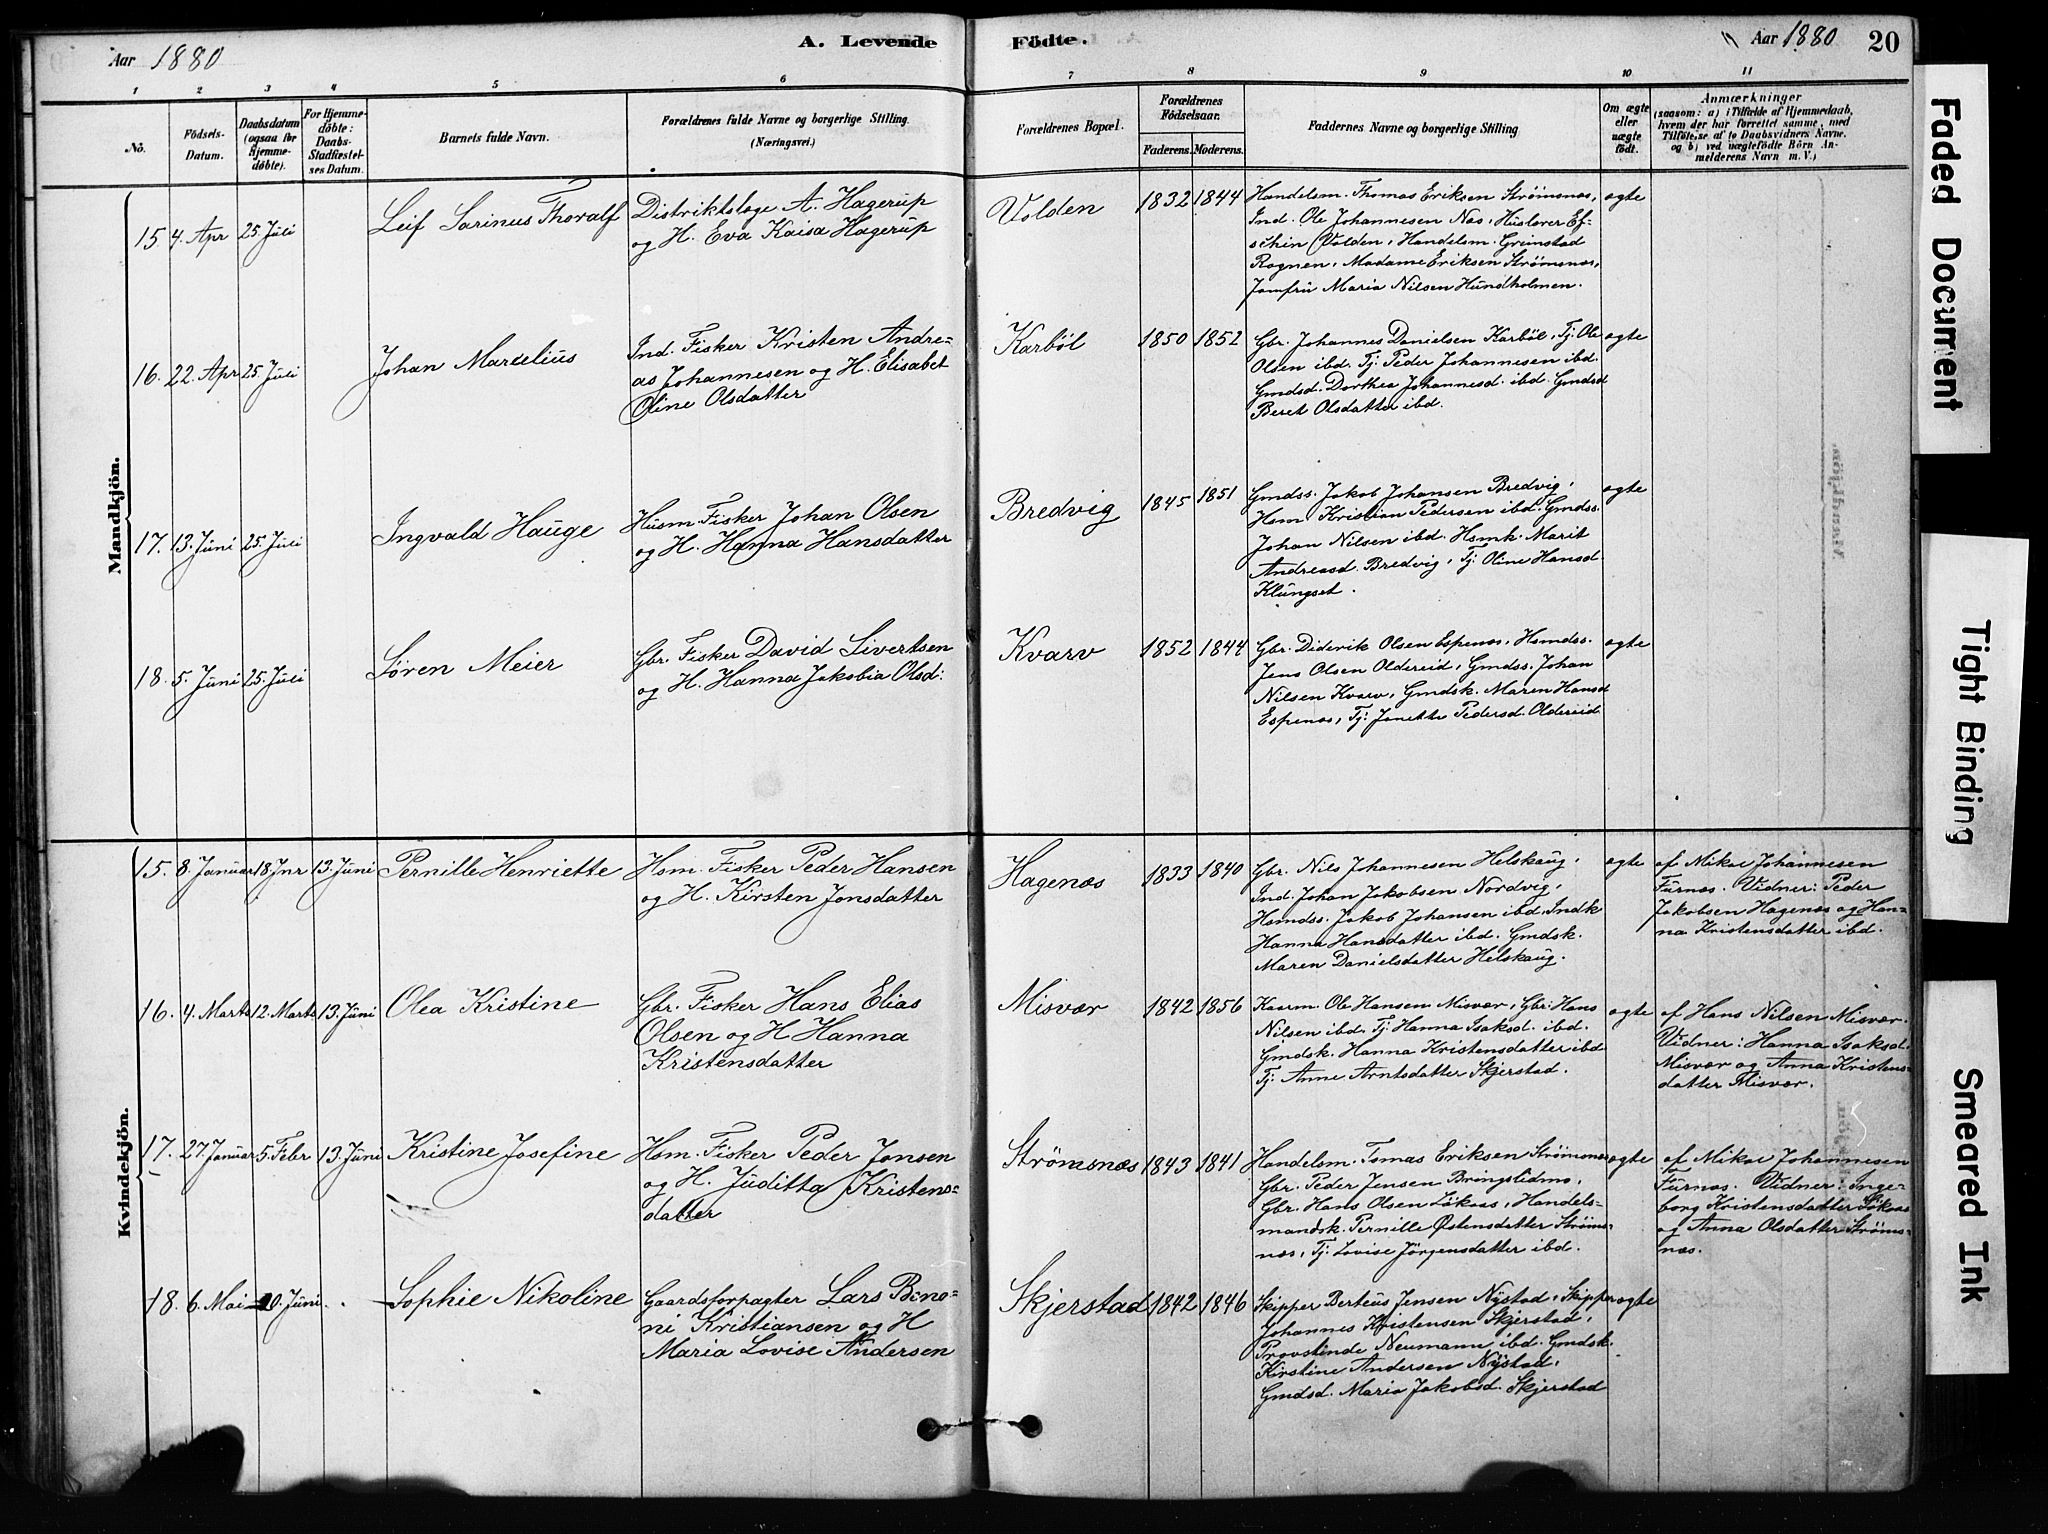 Aar 1880
A. Levende
Födte.
Aar 1880
20
1
2
3
4
5
6
7
8
9
10
11
No.
Födsels-
Datum.
Daabsdatum
(ogsaa for
Hjemme-
døbte).
For Hjemme-
døbte:
Daabs-
Stadfæstel-
ses Datum.
Barnets fulde Navn.
Forældrenes fulde Navne og borgerlige Stilling.
(Næringsvei.)
Forældrenes Bopæl.
Forældrenes
Födselsaar.
Faderens.
Moderens.
Faddernes Navne og borgerlige Stilling
Om ægte
eller
uægte
født.
Anmærkninger
(saasom: a) i Tilfælde af Hjemmedaab,
hvem der har forrettet samme, med
Tilføielse af to Daabsvidners Navne.
og b) ved uægtefødte Börn An-
melderens Navn m. V.)
Mandkjön.
15
4. Apr
25. Juli
Leif Sarinus Thoralf
Distriktslæge A. Hagerup
og H. Eva Kaisa Hagerup
Volden
1832
1844
Handelsm. Thomas Eriksen Strømsnæs,
Ind. Ole Johannesen Næs, Huslærer Ef-
schin Volden, Handelsm. Grimstad
Rognen, Madame Eriksen Strømsnæs,
Jomfru Maria Nilsen Hundholmen.
ægte
16.
22. Apr
25. Juli
Johan Marselius
Ind. Fisker Kristen Andre-
as Johannesen og H. Elisabet
Oline Olsdatter
Karbøl
1850
1852
Gbr. Johannes Danielsen Karbøl, Tj. Ole
Olsen ibd. Tj. Peder Johannesen ibd.
Gmdsd. Dorthea Johannesd. ibd. Gmdsd
Beret Olsdatter ibd.
ægte
17.
13. Juni
25. Juli
Ingvald Hauge
Husm. Fisker Johan Olsen
og H. Hanna Hansdatter
Bredvig
1845
1851
Gmdss. Jakob Johansen Bredvig,
Hsm. Kristian Pedersen ibd. Gmdss.
Johan Nilsen ibd. Hsmk. Marit
Andreasd. Bredvig, Tj. Oline Hansd.
Klungset.
ægte
18.
5. Juni
25. Juli
Søren Meier
Gbr. Fisker David Sivertsen
og H. Hanna Jakobia Olsd:
Kvarv
1852
1844
Gbr. Diderik Olsen Espenæs, Hsmdss.
Jens Olsen Oldereid, Gmdss. Johan
Nilsen Kvarv, Gmdsk. Maren Hansd
Espenæs, Tj: Janette Pedersd. Oldereid
ægte
Kvindekjön.
15.
8. Januar
18 Jnr
13. Juni
Pernille Henriette
Hsm. Fisker Peder Hansen
og H. Kirsten Jonsdatter
Hagenæs
1833
1840
Gbr. Nils Johannesen Helskaug,
Ind. Johan Jakobsen Nordvig,
Hsmdss. Jakob Johansen ibd. Indk
Hanna Hansdatter ibd. Gmdsk.
Maren Danielsdatter Helskaug.
ægte
af Mikal Johannesen
Furnæs. Vidner: Peder
Jakobsen Hagenæs og Han-
na Kristensdatter ibd.
16.
4. Marts
12. Marts
13. Juni
Olea Kristine
Gbr. Fisker Hans Elias
Olsen og H Hanna
Kristensdatter
Misvær
1842
1856
Kaarm. Ole Hansen Misvær, Gbr. Hans
Nilsen ibd. Tj. Hanna Isaksd. ibd.
Gmdsk. Hanna Kristensdatter ibd
Tj: Anne Arntsdatter Skjerstad.
ægte
af Hans Nilsen Misvær.
Vidner: Hanna Isaksd.
Misvær og Anna Kristens-
datter Misvær.
17.
27. Januar
5. Febr
13. Juni
Kristine Josefine
Hsm. Fisker Peder Jonsen
og H. Juditta Kristens-
datter
Strømsnæs
1843
1841
Handelsm. Tomas Eriksen Strømsnæs
Gbr. Peder Jensen Bringslidmo,
Gbr. Hans Olsen Løkaas, Handels-
mandsk. Pernille Østensdatter Strøms-
næs, Tj: Lovise Jörgensdatter ibd.
ægte
af Mikal Johannesen
Furnæs. Vidner: Inge-
borg Kristensdatter Løkaas
og Anna Olsdatter Strøms-
næs.
18.
6. Mai
20. Juni
Sophie Nikoline
Gaardsforpagter Lars Beno-
ni Kristiansen og H
Maria Lovise Andersen
Skjerstad
1842
1846
Skipper Berteus Jensen Nystad, Skipper
Johannes Kristensen Skjerstad,
Provstinde Neumann ibd. Gmdsk.
Kirstine Andersen Nystad,
Gmdsd. Maria Jakobsd. Skjerstad
ægte
Faded Document
Tight Binding
Smeared Ink